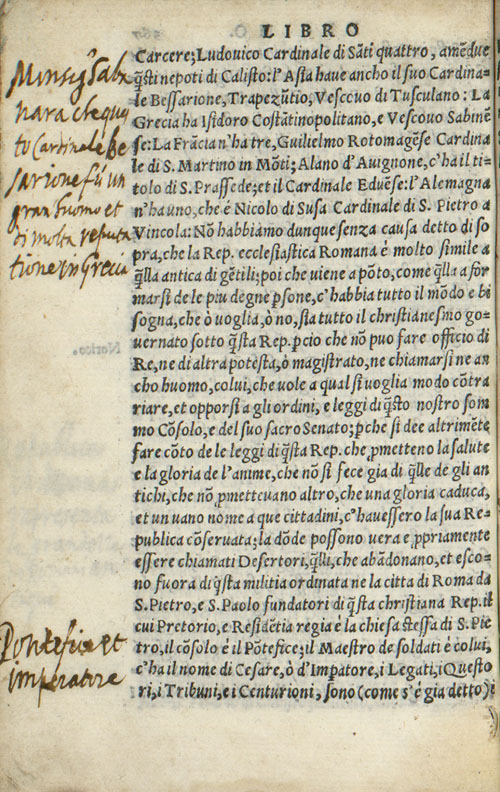 LIBRO
Carcere; Ludouico Cardinale di Sãti quattro, amẽdue
q̃sti nepoti di Calisto: l'Asia haue ancho il suo Cardina-
le Bessarione, Trapezũtio, Vescouo di Tusculano: La
Grecia ha Isidoro Costãtinopolitano, e Vescouo Sabinẽ
se: La Frãcia n'ha tre, Guilielmo Rotomagẽse Cardina
le di S. Martino in Mõti; Alano d'Auignone, c'ha il ti-
tolo di S. Prassede; et il Cardinale Eduẽse: l'Alemagna
n'ha uno, che é Nicolo di Susa Cardinale di S. Pietro a
Vincola: Nõ habbiamo dunque senza causa detto di so
pra, che la Rep. ecclesiastica Romana é molto simile a
q̃lla antica di gẽtili; poi che uiene a põto, come q̃lla a for
marsi de le piu degne p̃sone, c'habbia tutto il mõdo e bi
sogna, che ò uoglia, ò no, sia tutto il christianesmo go-
uernato sotto q̃sta Rep. p̃cio che nõ puo fare officio di
Re, ne di altra potẽsta, ò magistrato, ne chiamarsi ne an
cho huomo, colui, che uole a qual si uoglia modo cõtra
riare, et opporsi a gli ordini, e leggi di q̃sto nostro som
mo Cõsolo, e del suo sacro Senato; p̃che si dee altrimẽte
fare cõto de le leggi di q̃sta Rep. che, p̃mettено la salute
e la gloria de l'anime, che nõ si fece gia di q̃lle de gli an
tichi, che nõ p̃metteuano altro, che una gloria caduca,
et un uano nome a que cittadini, c'hauessero la sua Re-
publica cõseruata; la dõde possono uera e p̃priamente
essere chiamati Desertori, q̃lli, che abãdonano, et esco-
no fuora di q̃sta militia ordinata ne la citta di Roma da
S. Pietro, e S. Paolo fundatori di q̃sta christiana Rep. il
cui Pretorio, e Residẽtia regia é la chiesa stessa di S. Pie
tro, il cõsolo é il Põtefice; il Maestro de soldati é colui,
c'ha il nome di Cesare, ò d'Imp̃atore, i Legati, i Questo
ri, i Tribuni, e i Centurioni, sono (come s'é gia detto)
nara che que
to Cardinale Be
sarione fù un
gran huomo et
di molta reputa
tione in Grecia
Pontefice et
imperatore
Norico.